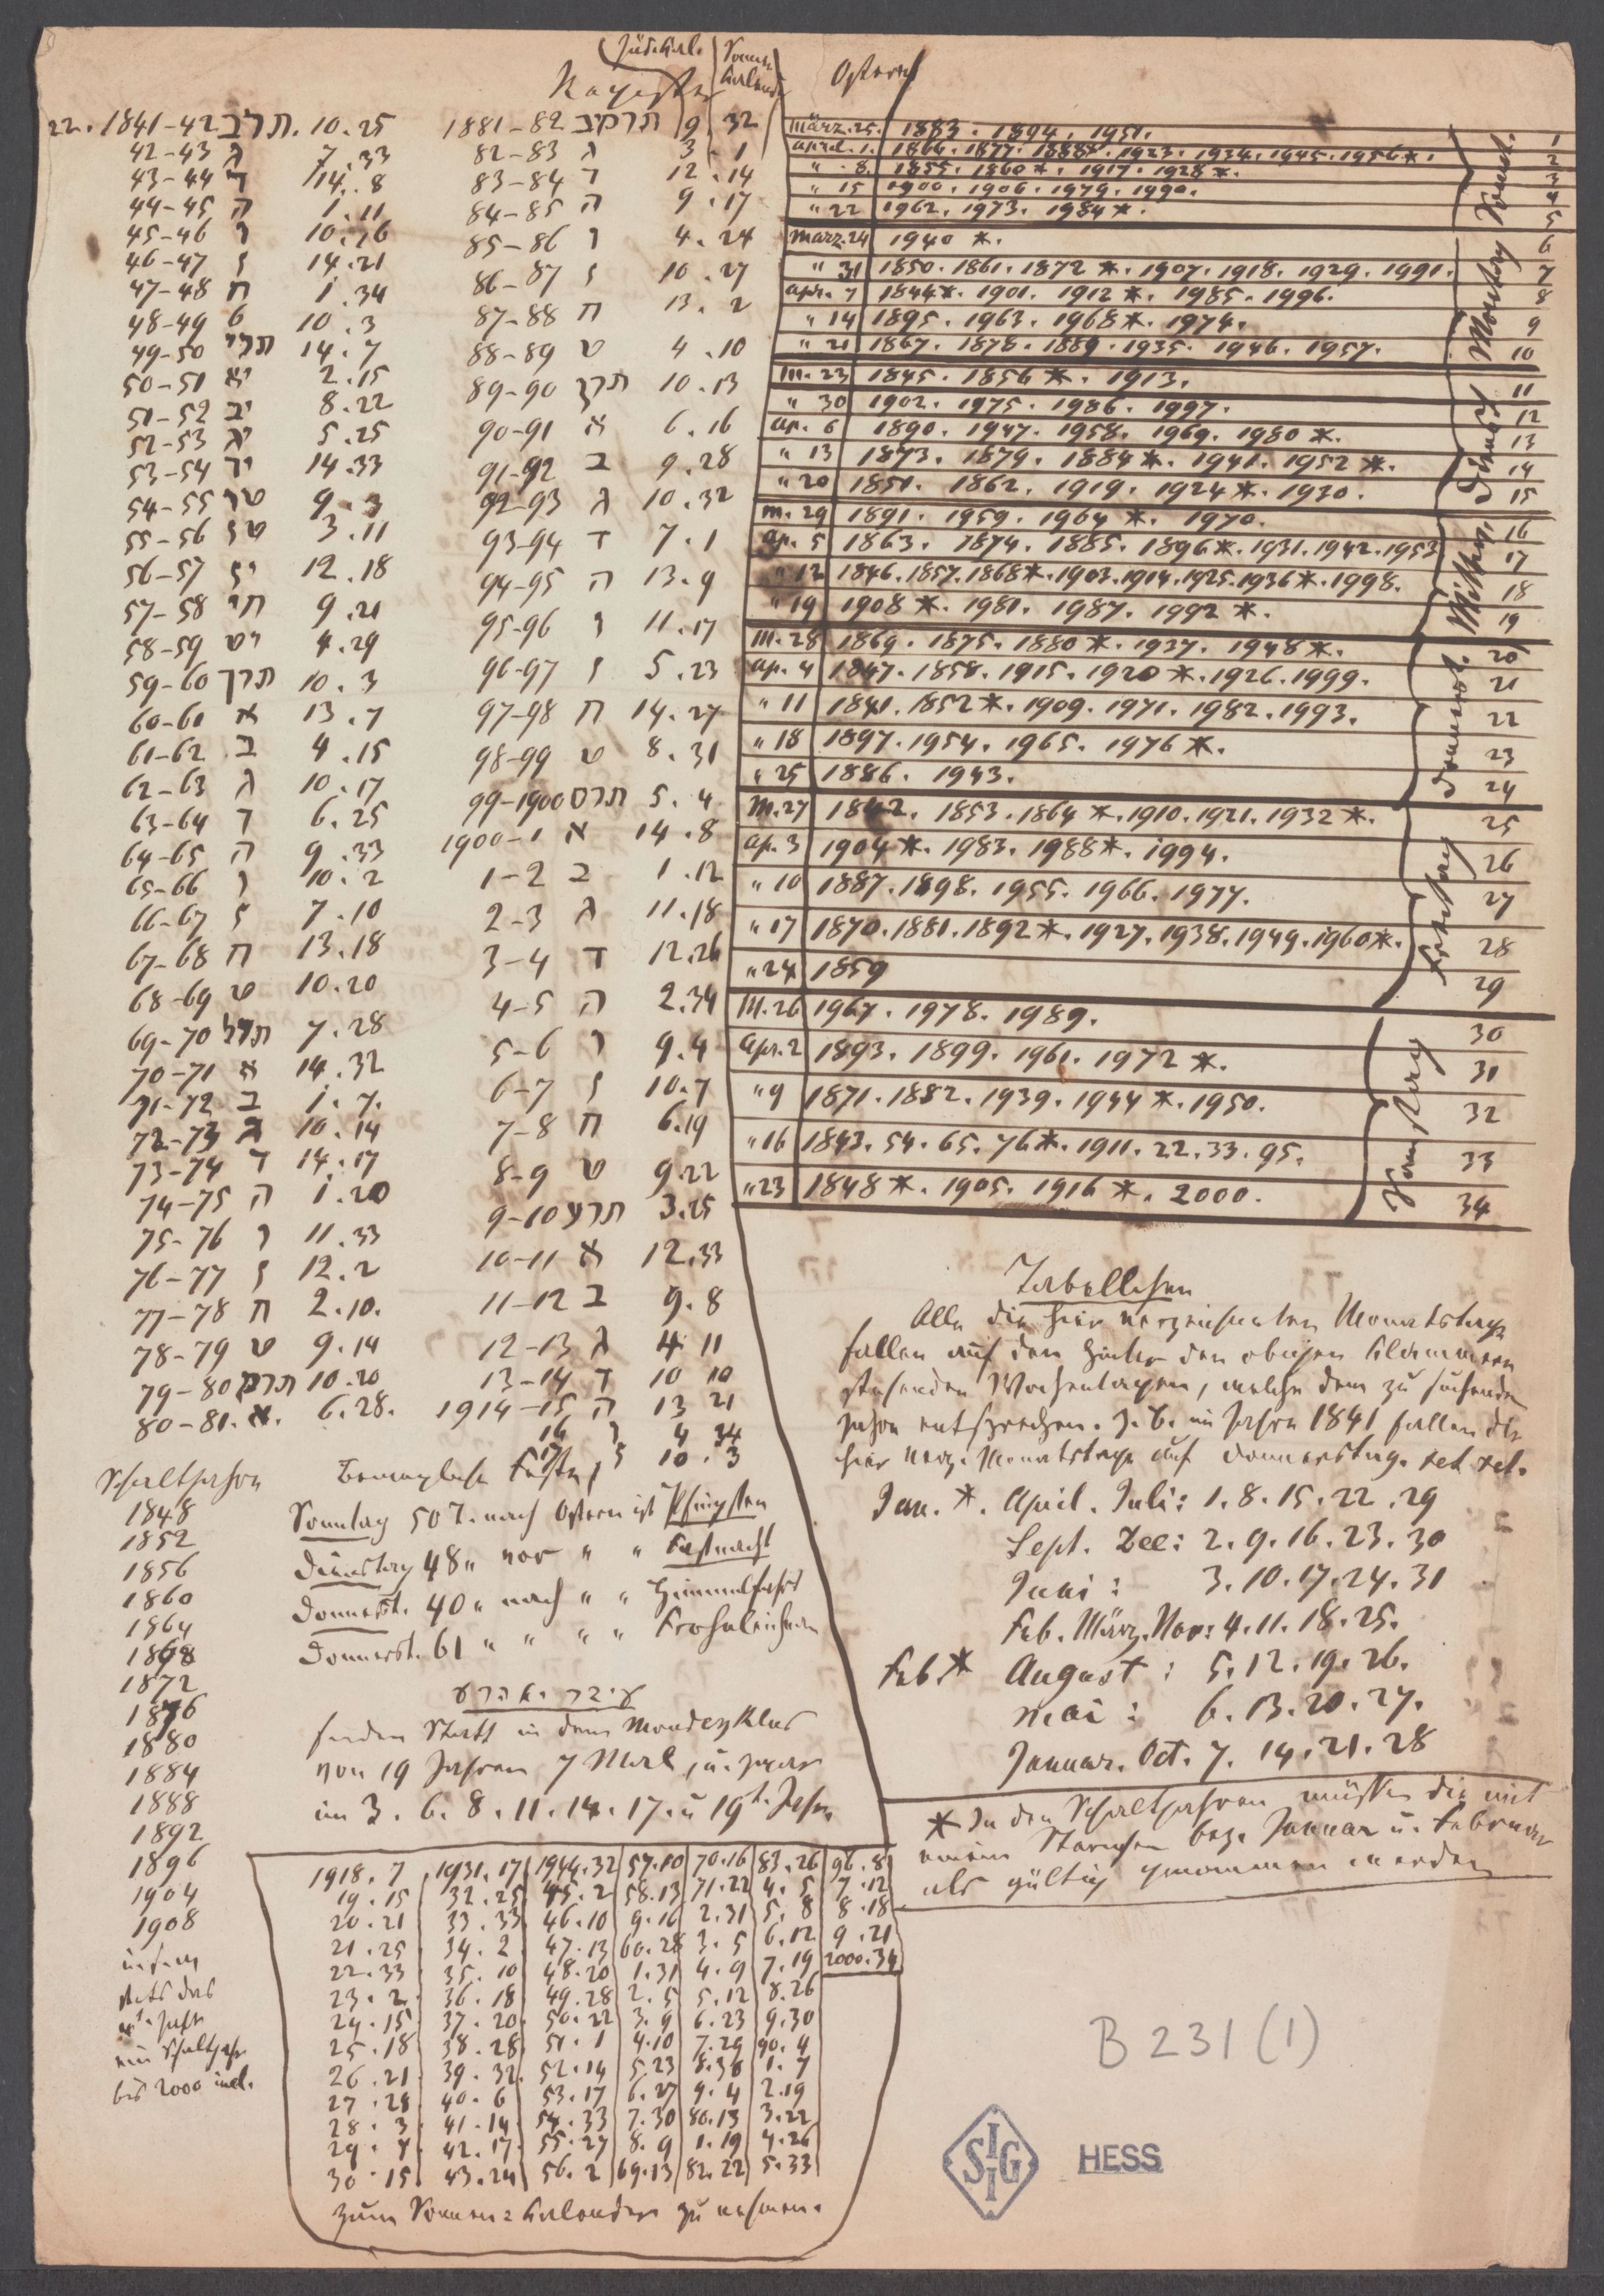 Jüd. Kal.
Sonnen Kalender
Register
Ostern
22. 1841-42 תרב. 10.25
42-43 ג 7.33
43-44 ד 14.8
44-45 ה 1.11
45-46 ו 10.16
46-47 ז 14.21
47-48 ח 1.34
48-49 ט 10.3
49-50 תרי 14.7
50-51 יא 2.15
51-52 יב 8.22
52-53 יג 5.25
53-54 יד 14.33
54-55 טו 9.3
55-56 טז 3.11
56-57 יז 12.18
57-58 חי 9.21
58-59 יט 4.29
59-60 תרך 10.3
60-61 א 13.7
61-62 ב 4.15
62-63 ג 10.17
63-64 ד 6.25
64-65 ה 9.33
65-66 ו 10.2
66-67 ז 7.10
67-68 ח 13.18
68-69 ט 10.20
69-70 תרל 7.28
70-71 א 14.32
71-72 ב 1.7.
72-73 ג 10.14
73-74 ד 14.17
74-75 ה 1.20
75-76 ו 11.33
76-77 ז 12.2
77-78 ח 2.10.
78-79 ט 9.14
79-80 תרם 10.20
80-81. א. 6.28.
1881-82 תרמב 9.32
82-83 ג 3.1
83-84 ד 12.14
84-85 ה 9.17
85-86 ו 4.24
86-87 ז 10.27
87-88 ח 13.2
88-89 ט 4.10
89-90 תרן 10.13
90-91 א 6.16
91-92 ב 9.28
92-93 ג 10.32
93-94 ד 7.1
94-95 ה 13.9
95-96 ו 11.17
96-97 ז 5.23
97-98 ח 14.27
98-99 ט 8.31
99-1900 תרס 5.4
1900-1 א 14.8
1-2 ב 1.12
2-3 ג 11.18
3-4 ד 12.26
4-5 ה 2.34
5-6 ו 9.4
6-7 ז 10.7
7-8 ח 6.19
8-9 ט 9.22
9-10 תרע 3.25
10-11 א 12.33
11-12 ב 9.8
12-13 ג 4 11
13-14 ד 10 10
1914-15 ה 13 21
16 ו 4 34
17 ז 10.3
März.25. 1883. 1894. 1951. 1
April.1. 1866. 1877. 1888*. 1923. 1934. 1945. 1956*. 2
" 8. 1855. 1860*. 1917. 1928*. 3
" 15 1900. 1906. 1979. 1990. 4
" 22 1962. 1973. 1984*. 5
Sonnt.
März.24 1940 *. 6
" 31 1850. 1861. 1872 *. 1907. 1918. 1929. 1991. 7
Apr. 7 1844*. 1901. 1912 *. 1985. 1996. 8
" 14 1895. 1963. 1968*. 1974. 9
" 21 1867. 1878. 1889. 1935. 1946. 1957. 10
Montag
M.23 1845. 1856 *. 1913. 11
" 30 1902. 1975. 1986. 1997. 12
Ap. 6 1890. 1947. 1958. 1969. 1980 *. 13
" 13 1873. 1879. 1884*. 1941. 1952 *. 14
" 20 1851. 1862. 1919. 1924*. 1930. 15
Dienst
M.29 1891. 1959. 1964 *. 1970. 16
Ap. 5 1863. 1874. 1885. 1896*. 1931. 1942. 1953 17
" 12 1846. 1857. 1868*. 1903. 1914. 1925. 1936*. 1998. 18
" 19 1908 *. 1981. 1987. 1992 *. 19
Mittw.
M.28 1869. 1875. 1880 *. 1937. 1948*. 20
Ap. 4 1847. 1858. 1915. 1920 *. 1926. 1999. 21
" 11 1841. 1852*. 1909. 1971. 1982. 1993. 22
" 18 1897. 1954. 1965. 1976 *. 23
" 25 1886. 1943. 24
Donnerst.
M.27 1842. 1853. 1864 *. 1910. 1921. 1932 *. 25
Ap. 3 1904*. 1983. 1988*. 1994. 26
" 10 1887. 1898. 1955. 1966. 1977. 27
" 17 1870. 1881. 1892*. 1927. 1938. 1949. 1960*. 28
" 24 1859 29
Freitag
M.26 1967. 1978. 1989. 30
Apr.2 1893. 1899. 1961. 1972 *. 31
" 9 1871. 1882. 1939. 1944 *. 1950. 32
" 16 1843. 54. 65. 76*. 1911. 22. 33. 95. 33
" 23 1848*. 1905. 1916 *. 2000. 34
Tabellchen
Alle die hier verzeichneten Monatstage
fallen auf den hinter den obigen Klammern
stehenden Wochentagen, welche dem zu suchenden
Jahre entsprechen. z. B. im Jahre 1841 fallen die
hier verz. Monatstage auf Donnerstag. ect ect.
Jan. *. April. Juli: 1. 8. 15. 22. 29
Sept. Dec: 2. 9. 16. 23. 30
Juni: 3. 10. 17. 24. 31
Feb. März. Nov: 4. 11. 18. 25.
Feb.* August: 5. 12. 19. 26.
Mai: 6. 13. 20. 27.
Januar. Oct. 7. 14. 21. 28
* In den Schaltjahren müssen die mit
einem Sternchen bez. Januar u. Februar
als gültig genommen werden
Schaltjahre
1848
1852
1856
1860
1864
1868
1872
1876
1880
1884
1888
1892
1896
1904
1908
stets das
4te Jahr
ein Schaltjahr
bis 2000 incl.
Bewegliche Feste,
Sonntag 50 T. nach Ostern ist Pfingsten
Dienstag 48 " vor " " Fastnacht
Donnerst. 40 " nach " " Himmelfahrt
Donnerst. 61 " " " " Frohnleichnam
finden Statt in dem Mondcyklus
von 19 Jahren 7 Mal, u. zwar
im 3. 6. 8. 11. 14. 17. u 19t. Jahr
1918.7 1931.17 1944.32 57.10 70.16 83.26 96.8
19.15 32.25 45.2 58.13 71.22 4.5 7.12
20.21 33.33 46.10 9.16 2.31 5.8 8.18
21.25 34.2 47.13 60.28 3.5 6.12 9.21
22.33 35.10 48.20 1.31 4.9 7.19 2000.34
23.2 36.18 49.28 2.5 5.12 8.26
24.15 37.20 50.22 3.9 6.23 9.30
25.18 38.28 51.1 4.10 7.29 90.4
26.21 39.32 52.14 5.23 8.30 1.7
27.28 40.6 53.17 6.27 9.4 2.19
28.3 41.14 54.33 7.30 80.13 3.22
29.7 42.17 55.27 8.9 1.19 4.26
30.15 43.24 56.2 69.13 82.22 5.33
zum Sonnen=Kalender zu nehmen.
B 231 (1)
SIG
HESS